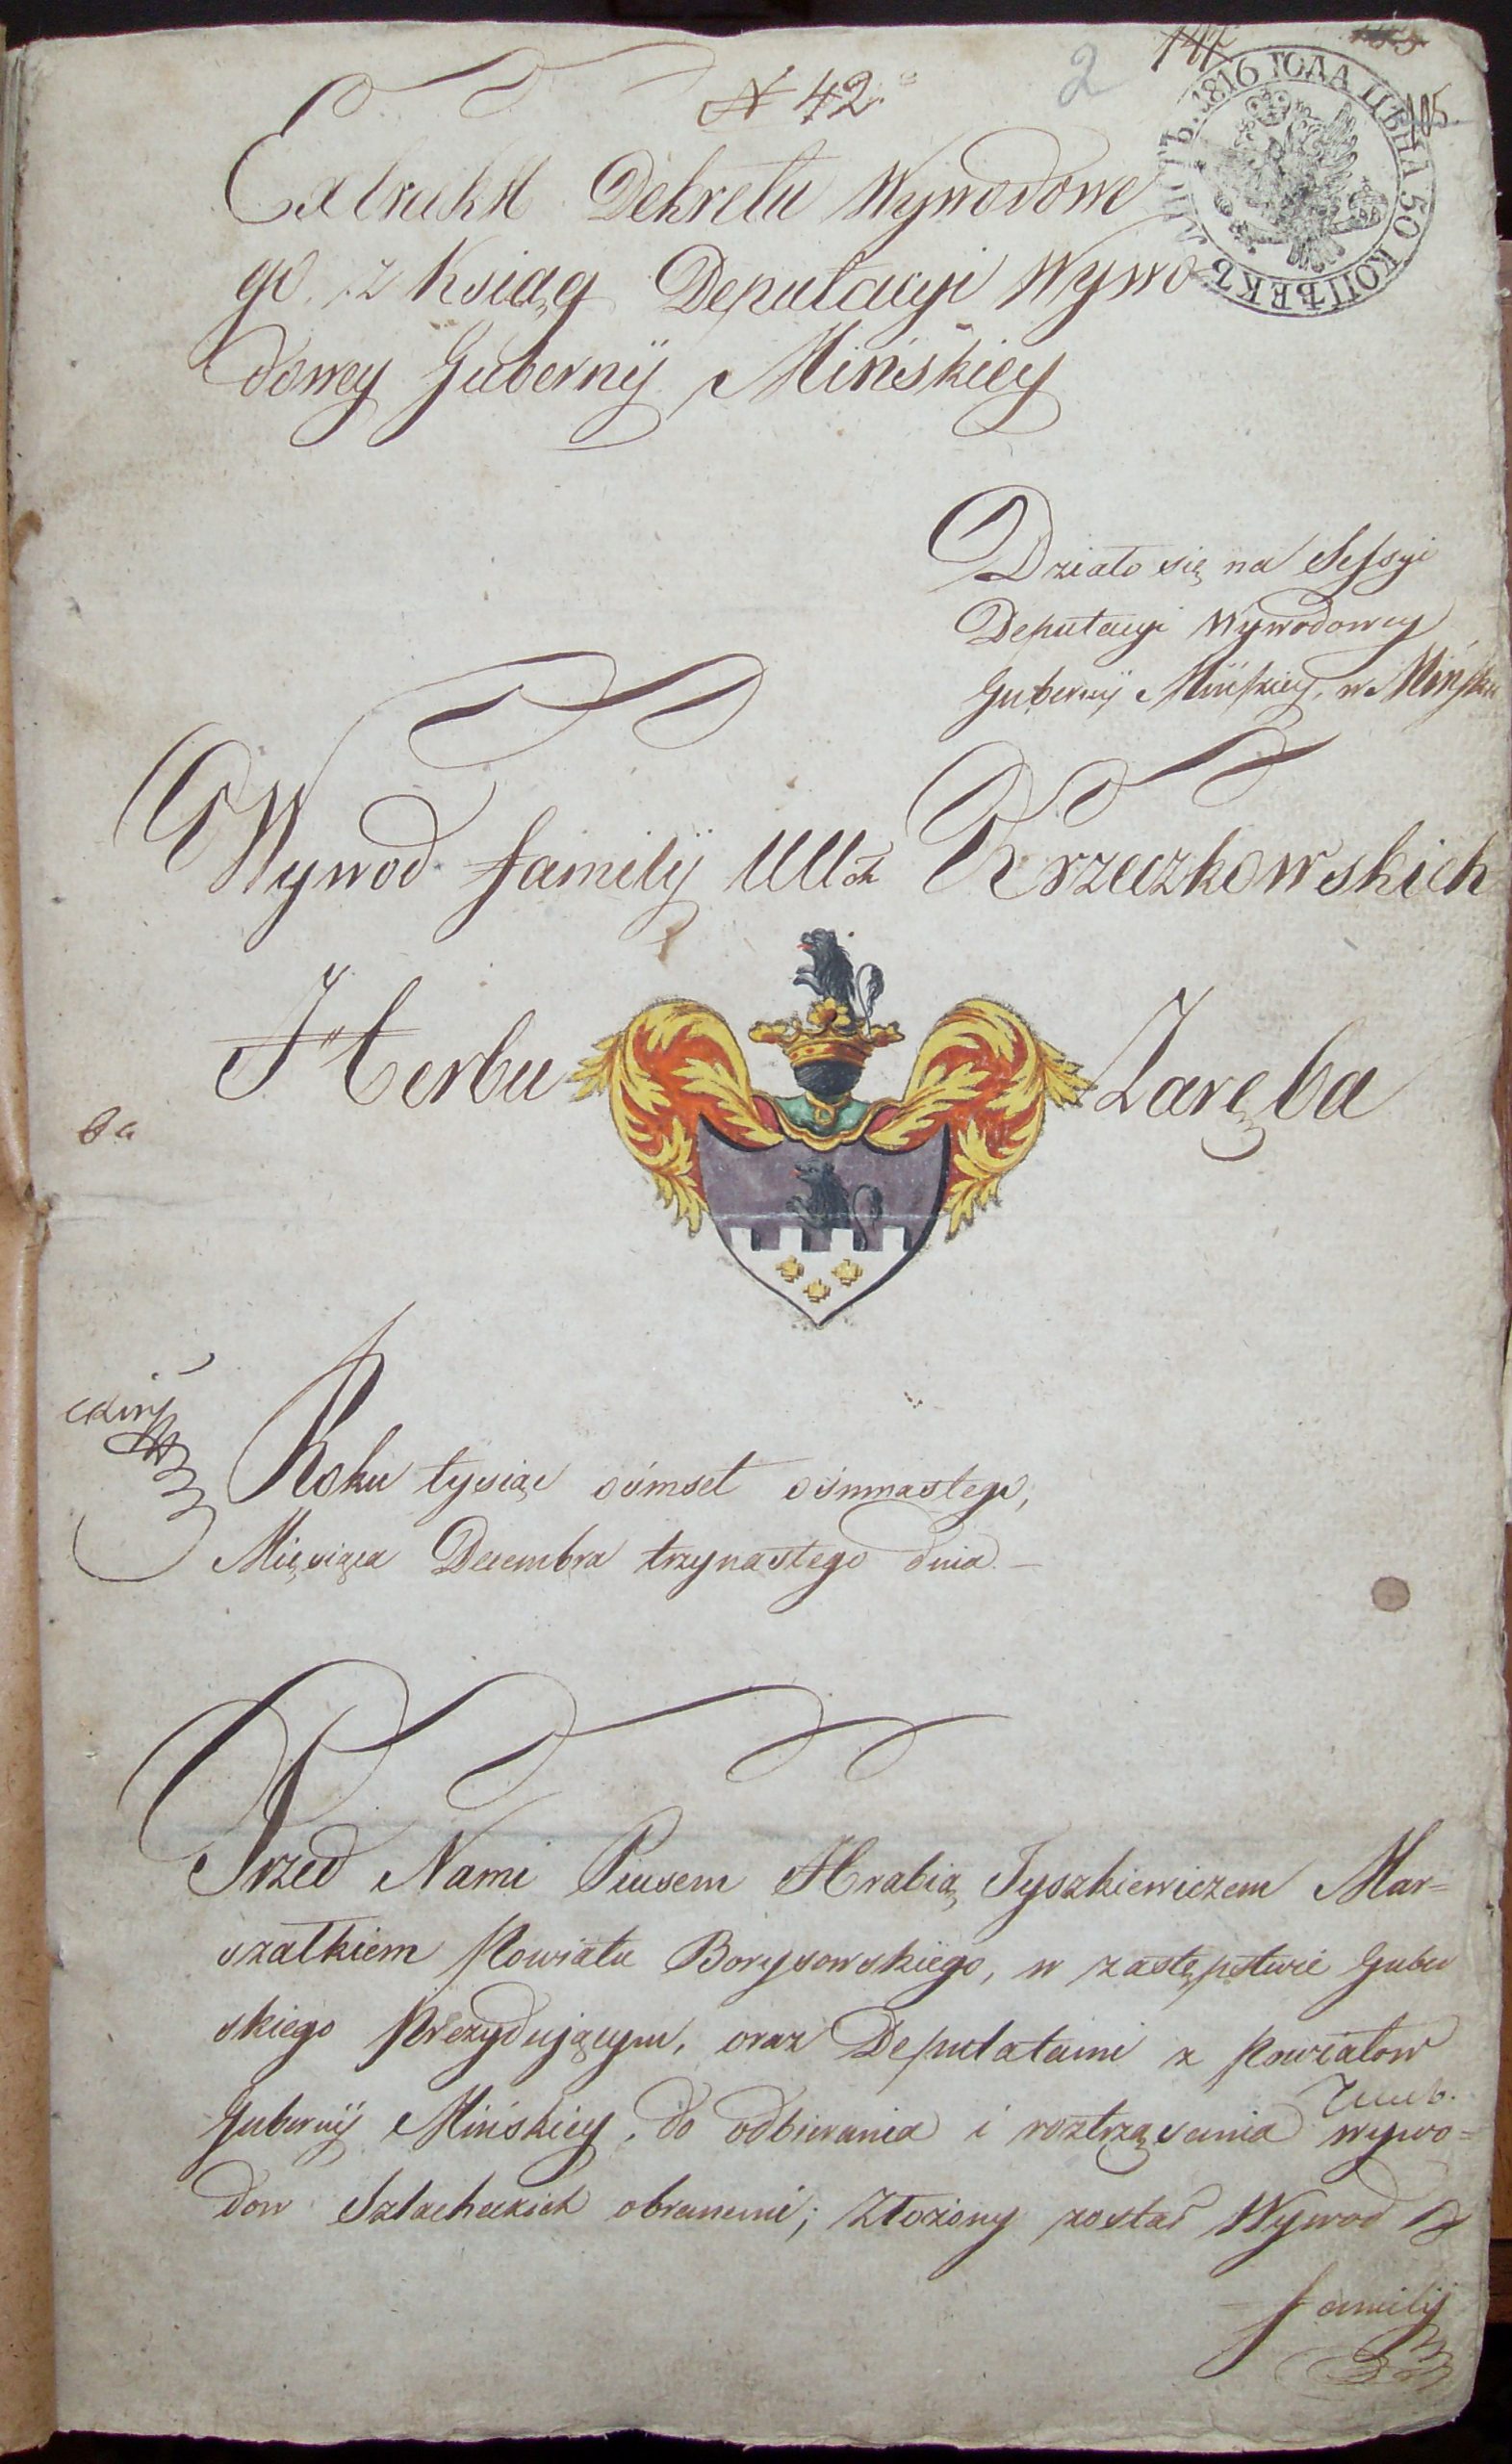 N 42.
2
105.
ЛИСТЪ. 1816 ГОДА ЦѢНА 50 КОПѢЕКЪ
Extrukt Dekretu Wywodowe
go z Ksiąg Deputacyi Wywo
dowey Gubernij Mińskiey
Działo się na Sessyi
Deputacyi Wywodowey
Gubernij Mińskiey, w Mińsku
Wywod familij UUch Krzeczkowskich
Herbu Zaręba
Roku tysiąc ośmset ośmnastego,
Miesiąca Decembra trzynastego dnia. —
Przed Nami Piusem Hrabią Tyszkiewiczem Mar=
szałkiem Powiatu Borysowskiego, w zastępstwie Guber
skiego Prezydującym, oraz Deputatami z Powiatow
Gubernij Mińskiey, do odbierania i roztrząsania wywo=
dow Szlacheckich obranemi; Złożony został Wywod
familij